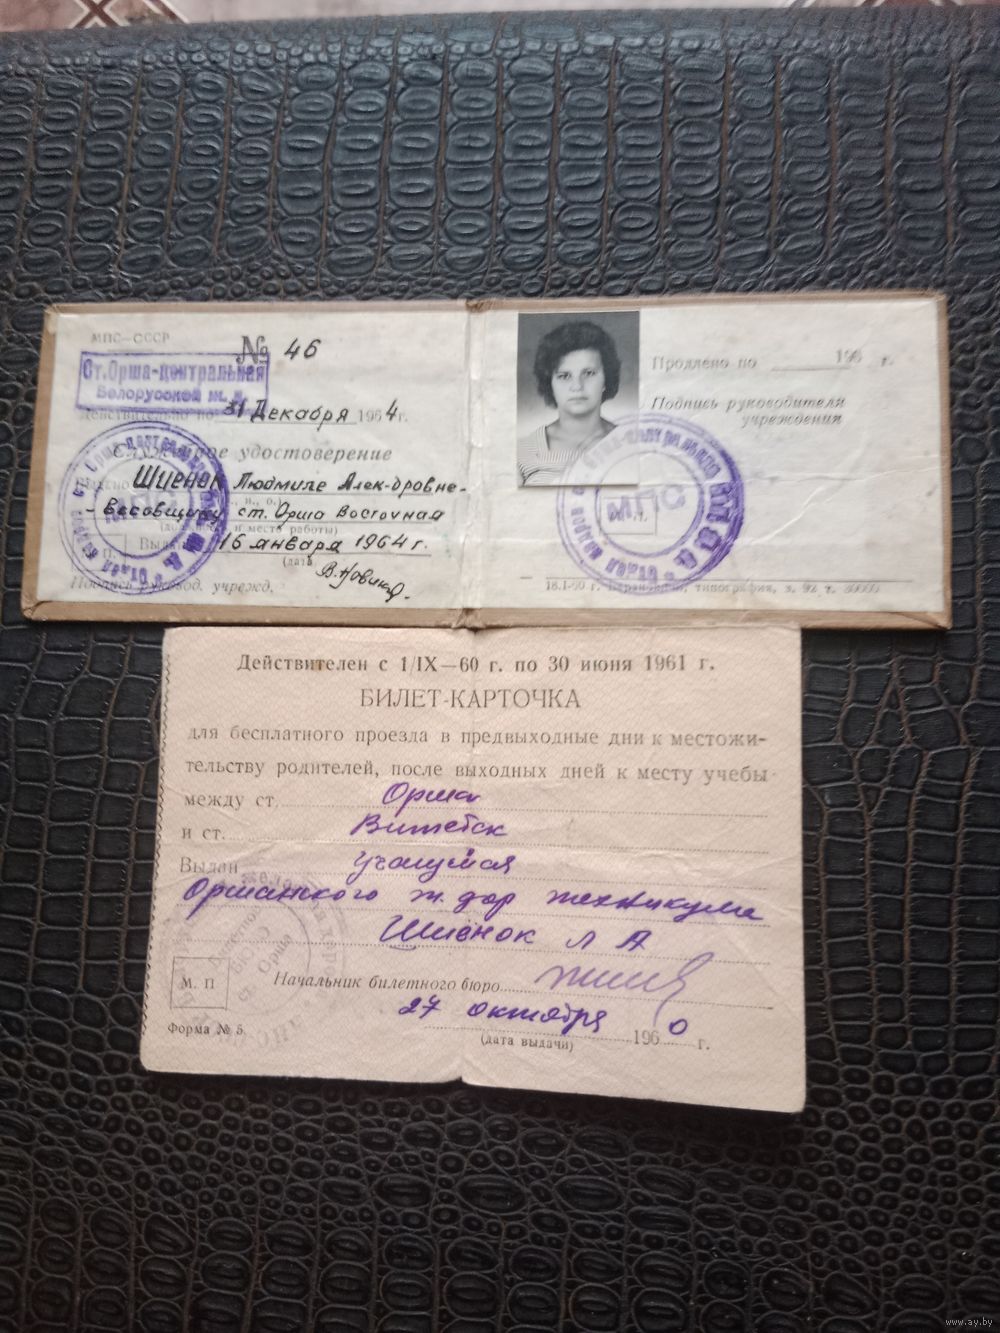 МПС—СССР
№ 46
Ст.Орша-центральная
Белорусской ж. д.
Действительно по 31 Декабря 1964 г.
Служебное удостоверение
Выдано Шиенок Людмиле Алек-дровне-
-весовщику ст. Орша Восточная
(должность и место работы)
Выдано 16 января 1964 г.
(дата
В.Новик
Подпись руковод. учрежд.
Продлено по 196 г.
Подпись руководителя
учреждения
МПС
18.I-60 г. типография, з. 92 т.
Действителен с 1/IX—60 г. по 30 июня 1961 г.
БИЛЕТ-КАРТОЧКА
для бесплатного проезда в предвыходные дни к местожи-
тельству родителей, после выходных дней к месту учебы
между ст. Орша
и ст. Витебск
Выдан учащейся
Оршанского ж. дор техникума
Шиенок Л А
М. П
Начальник билетного бюро
27 октября 1960 г.
(дата выдачи)
Форма № 5.
www.ay.by